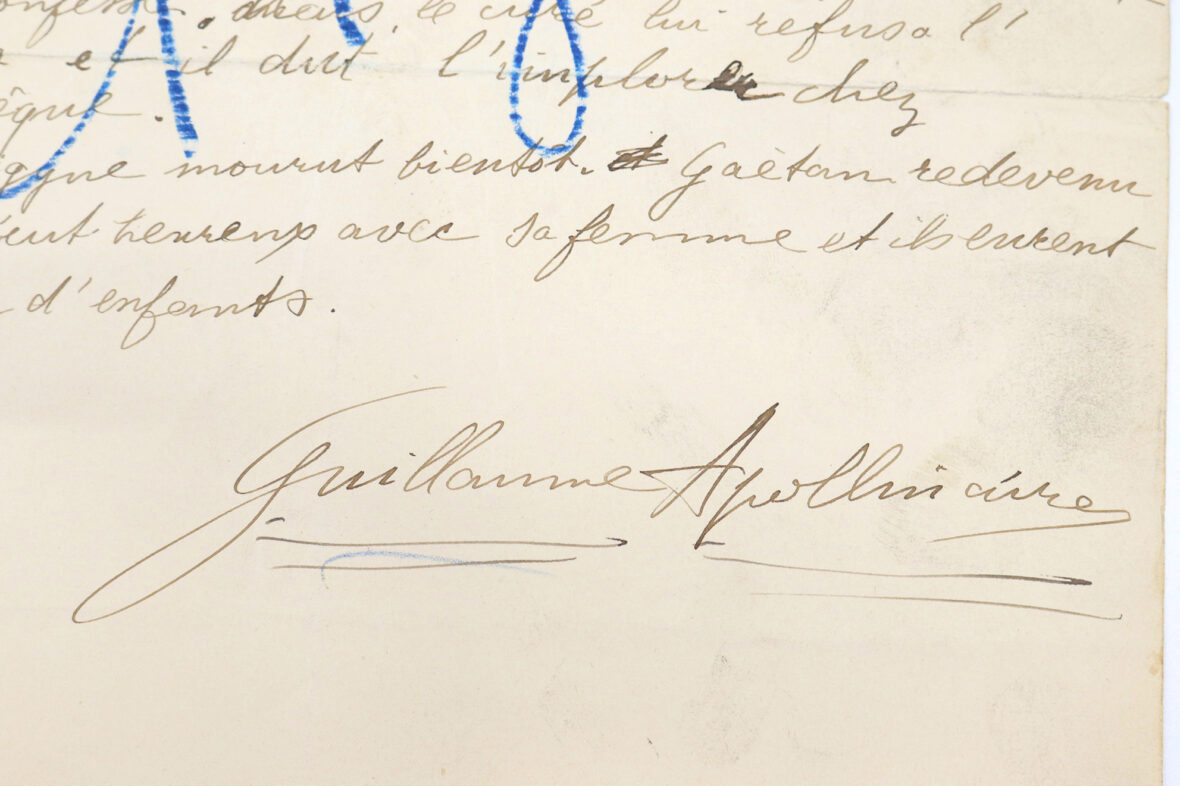 onfessa. mais, le curé lui refusa l'
et il dut l'implorer chez
êque.
agne mourut bientôt. Gaëtan redevenu
écut heureux avec sa femme et ils eurent
d'enfants.
Guillaume Apollinaire